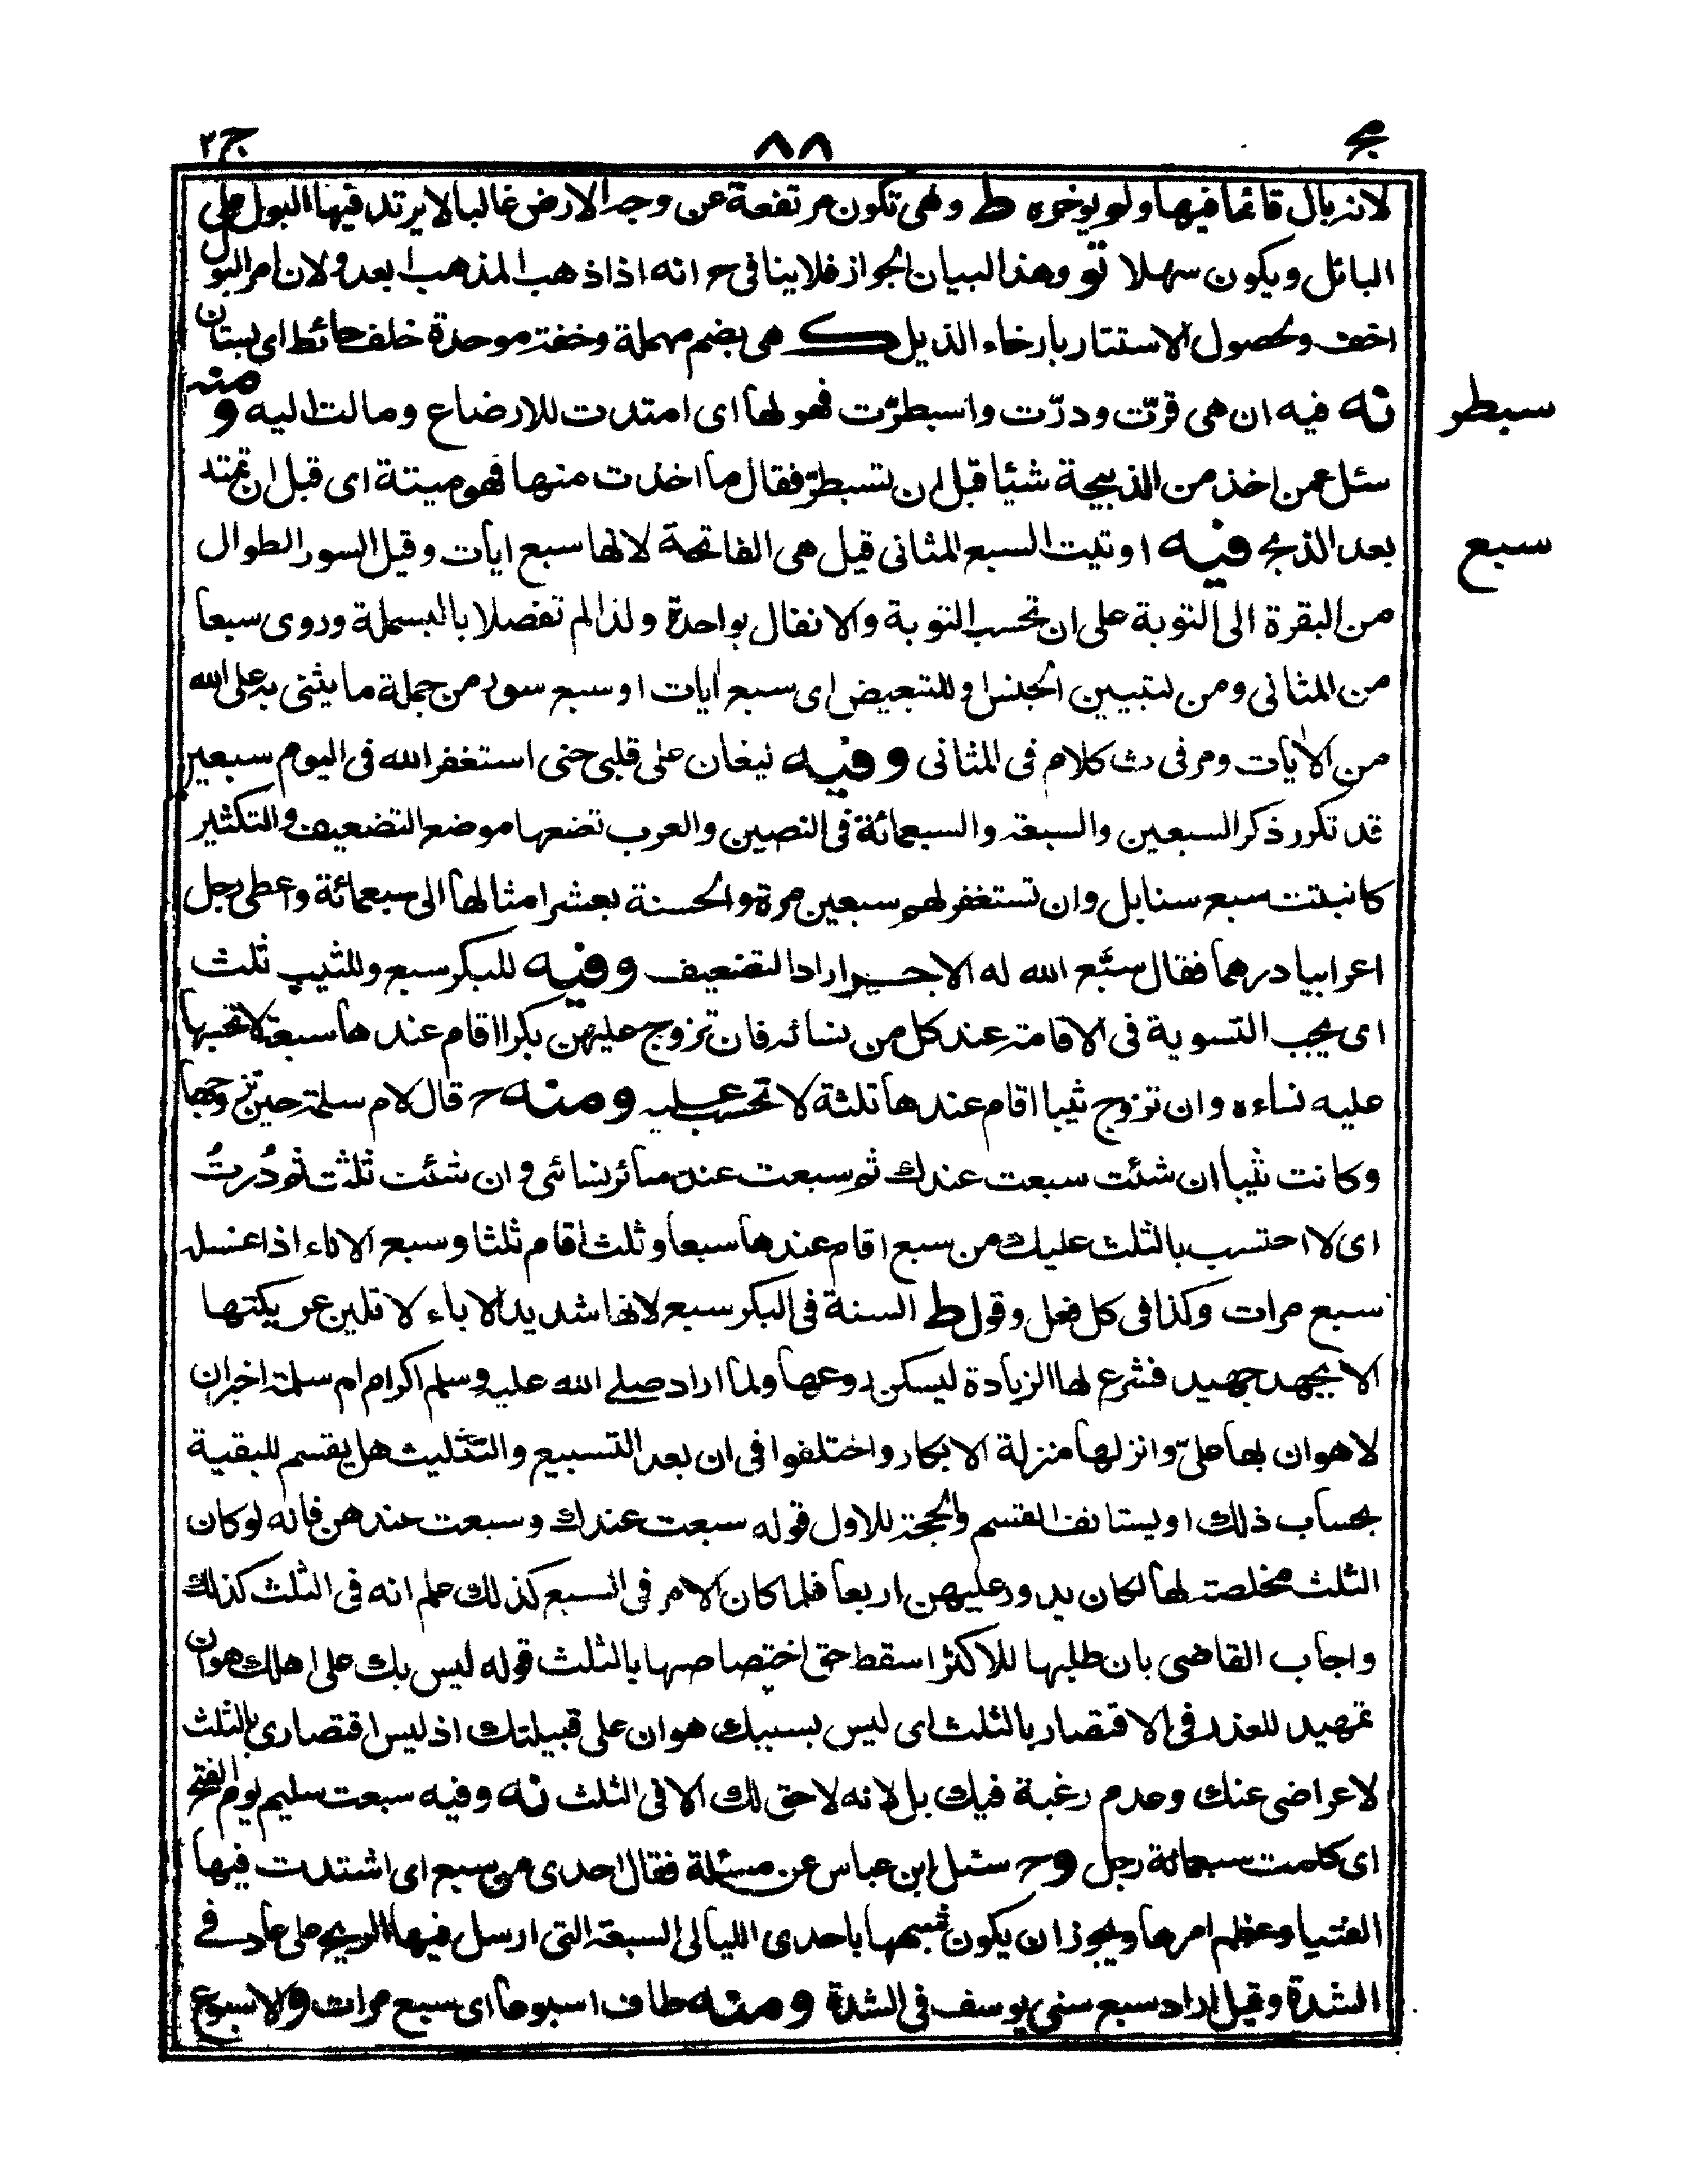 مج ٨٨ ج٣
لانه بال قائما فيها ولم يؤخره ط وهى تكون مرتفعة عن وجه الارض غالبا لا يرتد فيها البول على
البائل ويكون سهلا تو وهذا لبيان الجواز فلا ينافى ح انه اذا ذهب المذهب ابعد ولان امر البول
اخف ولحصول الاستتار بارخاء الذيل ك هى بضم مهملة وخفة موحدة خلف حائط اى بستان
سبطر
نه فيه ان هى قرّت ودرّت واسبطرّت فهو لها اى امتدت للارضاع ومالت اليه ومنه
سئل عمن اخذ من الذبيحة شيئا قبل ان تسبطرّ فقال ما اخذت منها فهو ميتة اى قبل ان تمتد
سبع
بعد الذبح فيه اوتيت السبع المثانى قيل هى الفاتحة لانها سبع ايات وقيل السور الطوال
من البقرة الى التوبة على ان تحسب التوبة والانفال بواحدة ولذا لم تفصلا بالبسملة وروى سبعا
من المثانى ومن لتبيين الجنس او للتبعيض اى سبع ايات او سبع سور من جملة ما يثنى به على الله
من الأيات ومر فى ث كلام فى المثانى وفيه ليغان على قلبى حتى استغفر الله فى اليوم سبعين
قد تكرر ذكر السبعين والسبعة والسبعمائة فى النصين والعرب تضعها موضع التضعيف والتكثير
كانبتت سبع سنابل وان تستغفر لهم سبعين مرة والحسنة بعشر امثالها الى سبعمائة واعطى رجل
اعرابيا درهما فقال سبّع الله له الاجر اراد التضعيف وفيه للبكر سبع وللثيب ثلث
اى يجب التسوية فى الاقامة عند كل من نسائه فان تزوج عليهن بكرا اقام عندها سبعة لا تحسبها
عليه نساءه وان تزوج ثيبا اقام عندها ثلثة لا تحسب عليه ومنه ح قال لام سلمة حين تزوجها
وكانت ثيبا ان شئت سبعت عندك ثم سبعت عند سائر نسائى وان شئت ثلثت ثم دُرتُ
اى لا احتسب بالثلث عليك من سبع اقام عندها سبعا وثلث اقام ثلثا وسبع الاناء اذا غسله
سبع مرات وكذا فى كل فعل وقول ط السنة فى البكر سبع لانها شديد الاباء لا تلين عريكتها
الا بجهد جهيد فشرع لها الزيادة ليسكن روعها ولما اراد صلى الله عليه وسلم اكرام ام سلمة اخبر ان
لا هوان بها علىّ وانزلها منزلة الابكار واختلفوا فى ان بعد التسبيع والتثليث هل يقسم للبقية
بحساب ذلك او يستانف القسم والحجة للاول قوله سبعت عندك وسبعت عندهن فانه لو كان
الثلث مخلصة لها لكان يدور عليهن اربعا فلما كان الامر فى السبع كذلك علم انه فى الثلث كذلك
واجاب القاضى بان طلبها للاكثر اسقط حق اختصاصها بالثلث قوله ليس بك على اهلك هوان
تمهيد للعذر فى الاقتصار بالثلث اى ليس بسببك هوان على قبيلتك اذ ليس اقتصارى بالثلث
لاعراضى عنك وعدم رغبة فيك بل لانه لا حق لك الا فى الثلث نه وفيه سبعت سليم يوم الفتح
اى كلمت سبعمائة رجل وح سئل ابن عباس عن مسئلة فقال احدى من سبع اى اشتدت فيها
الفتيا وعظم امرها ويجوز ان يكون شبهها باحدى الليالى السبعة التى ارسل فيها الريح على عاد فى
الشدة وقيل اراد سبع سنى يوسف فى الشدة ومنه طاف اسبوعا اى سبع مرات والاسبوع